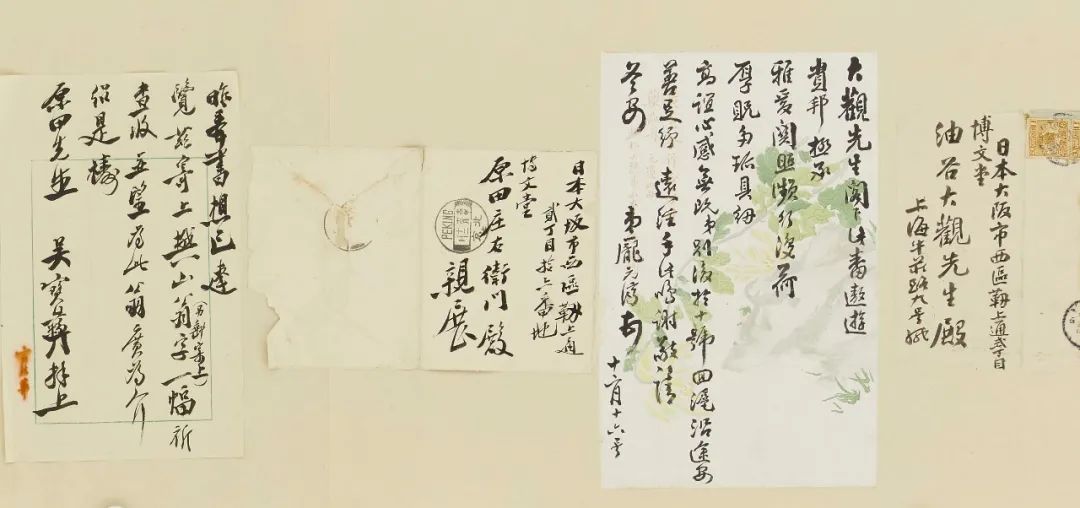 日本大阪市西區靱上通弐丁目
博文堂
油谷大觀先生殿
上海牛莊路九号緘
大觀先生閣下此番遨遊
貴邦極承
雅愛関照頻行復荷
厚貺多珎具紉
高誼心感無既弟別後於十號回滬沿途安
善足紓遠注手此鳴謝敬請
荃安 弟龐元濟頓首
十二月十六号
日本大阪市西區靱上通
貳丁目拾六番地
博文堂
原田庄右衛門殿
親展
PEKING
北京
昨奉書想已達
覽茲寄上樾山翁字一幅祈
(另郵寄上)
查收並望为此翁廣为介
紹是禱
原田先生 吳寶煒拜上